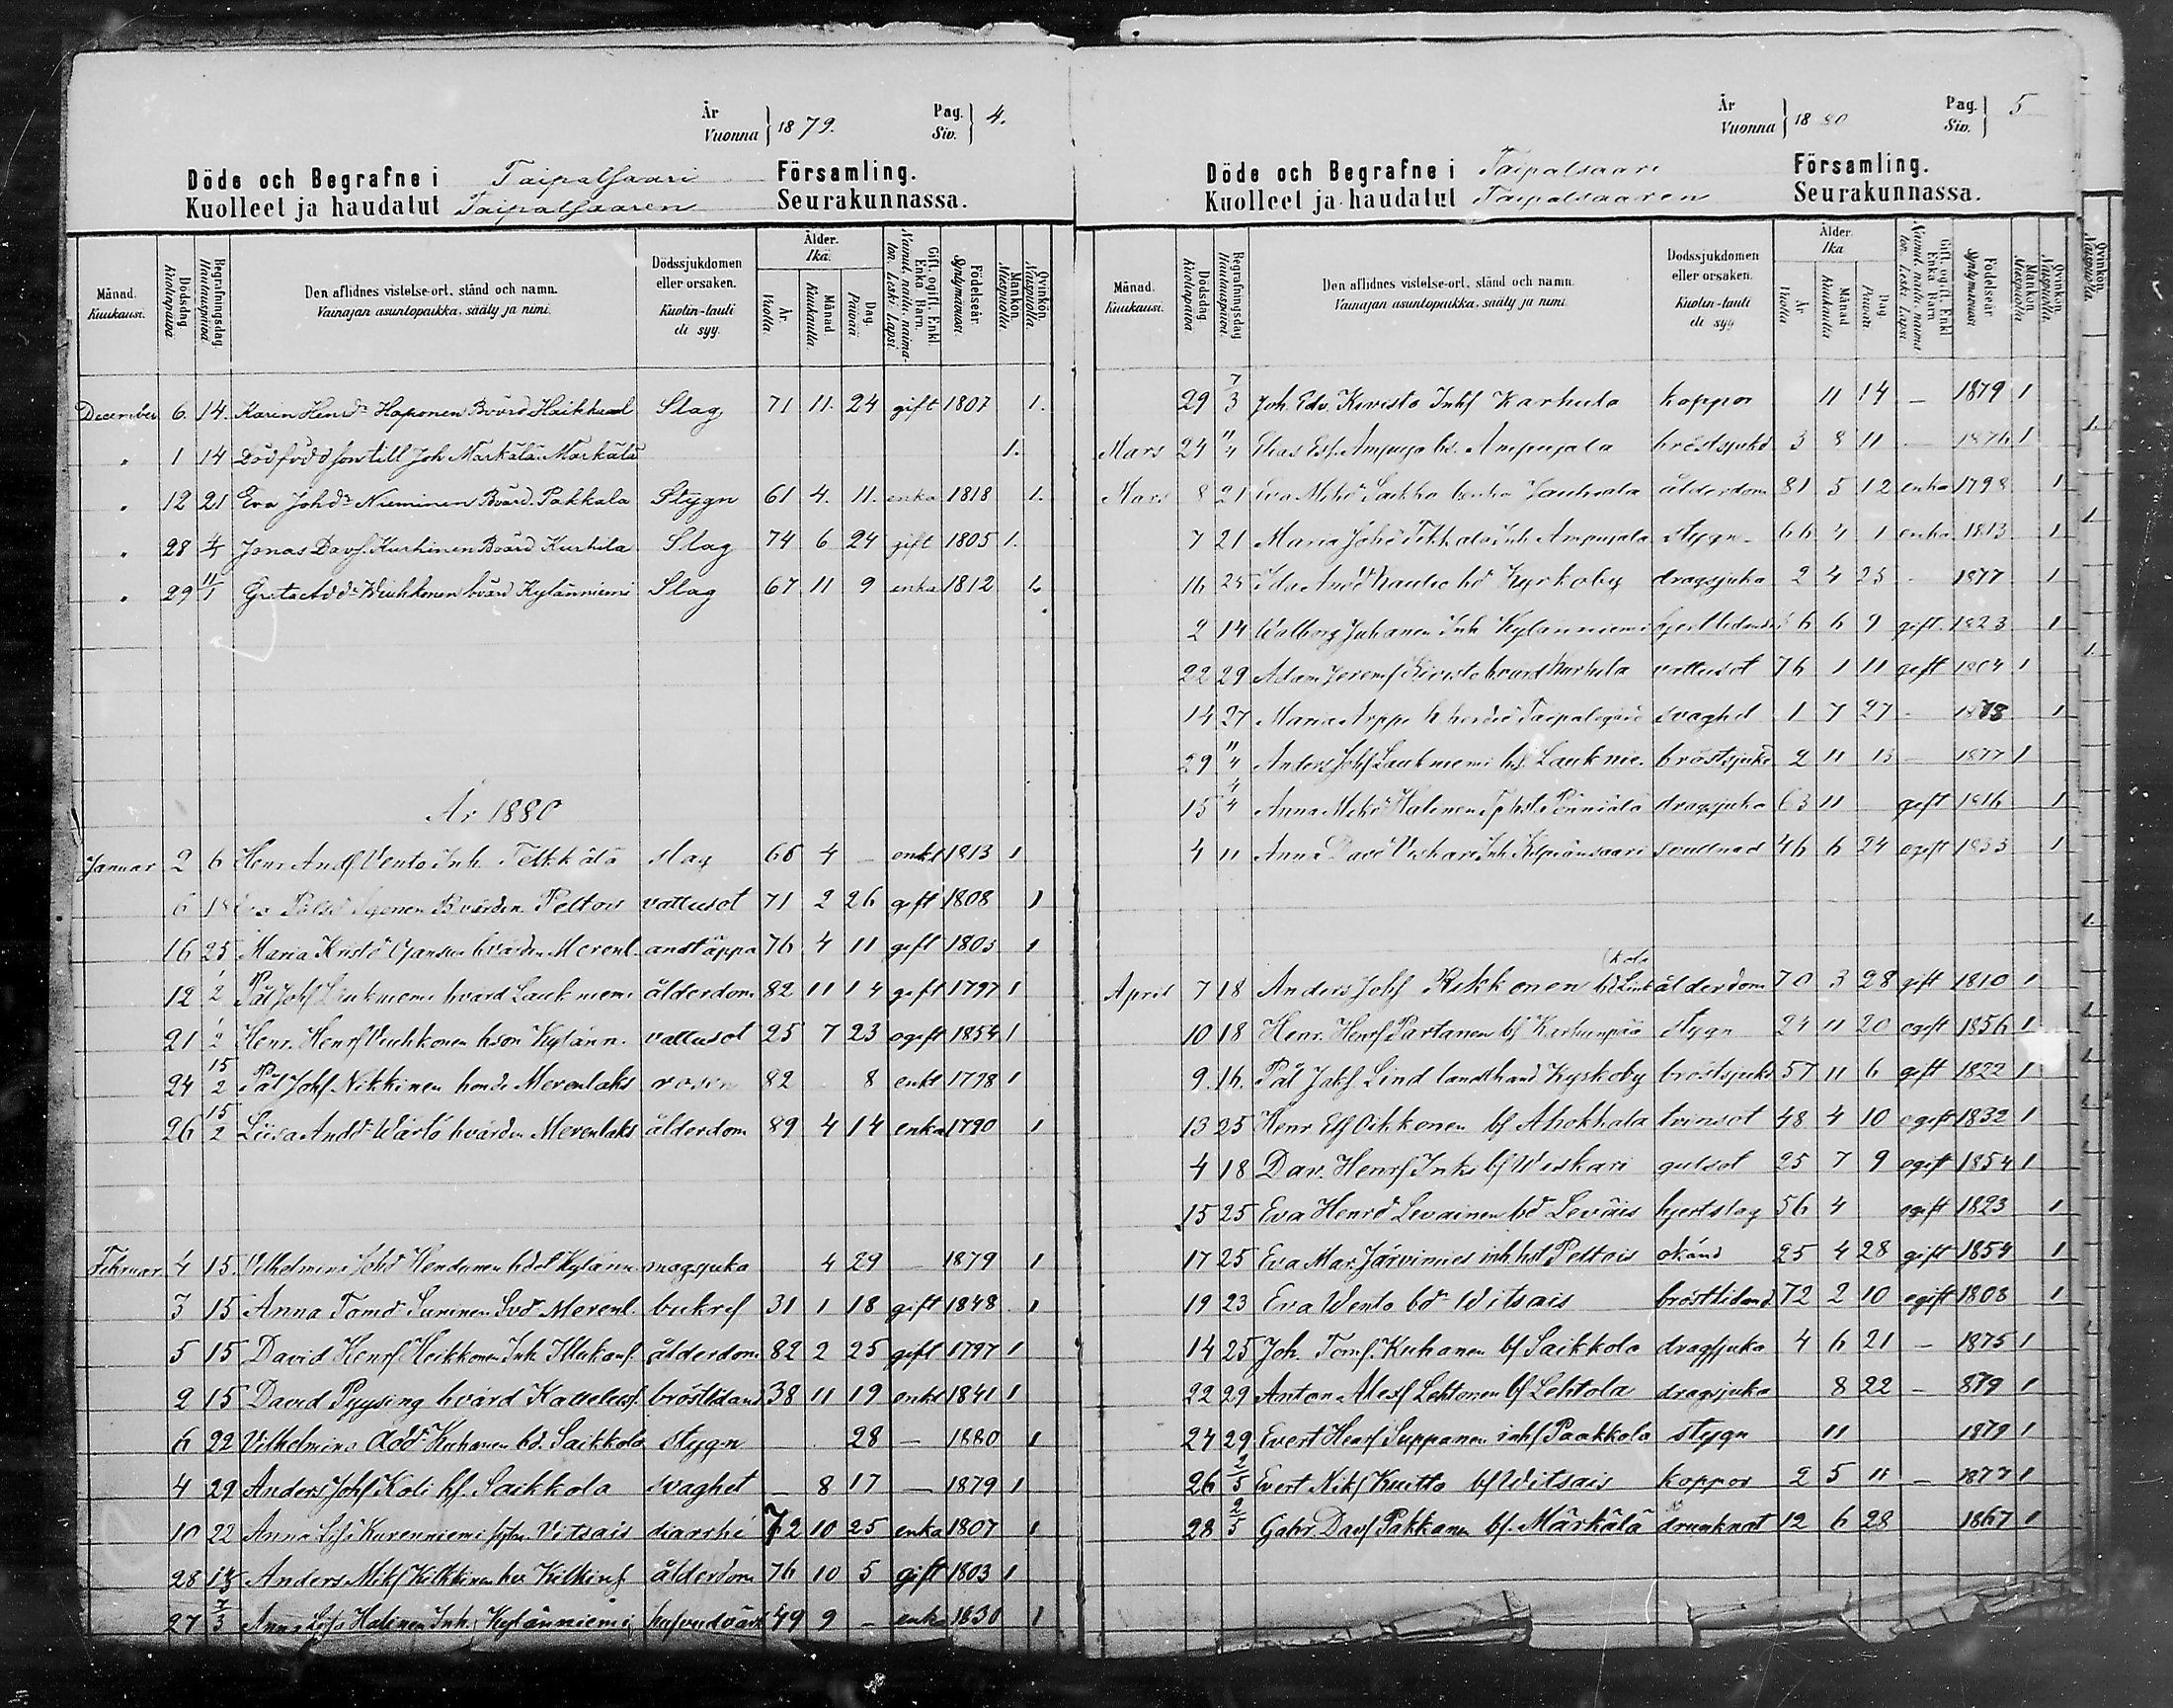 År
Vuonna } 1879. Pag.
Siv. } 4.
Döde och Begrafne i Taipalsaari Församling.
Kuolleet ja haudatut Taipalsaaren Seurakunnassa.
Månad. Kuukausi. Dödsdag. Kuolinpäivä Begrafningsdag. Hautauspäivä Den aflidnes vistelse-ort, stånd och namn. Vainajan asuntopaikka, sääty ja nimi. Dödssjukdomen eller orsaken. Kuolin-tauti eli syy. Ålder. Ikä. År. Vuotta. Månad Kuukautta. Dag. Päivää Gift, ogift, Enkl. Enka Barn. Födelseår. Syntymävuosi. Mankön. Miespuolia. Qvinkön. Naispuolia.
December 6. 14. Karin Henrdr Haponen Bvärd Haikkaal Slag 71 11. 24 gift 1807 1.
" 1 14 Dödfödd son till Joh Märkälä Märkälä 1.
" 12 21 Eva Johdr Nieminen Bvärd. Pakkala Stygn 61 4. 11. enka 1818 1.
" 28 Jonas Davs. Kurhinen Bvärd Kurhila Slag 74 6 24 gift 1805 1.
" 29 11/1 Greta Addr Wiuhkonen bvärd Kylänniemi Slag 67 11 9 enka 1812 1.
År 1880
Januar 2 6 Henr Andf Vento Inh. Telkkälä slag 66 4 – enkl 1813 1
6 18 Eva Pålsd Bvärdin. Peltois vattusot 71 2 26 gift 1808 1
16 25 Maria Kristd bvärdin Merenl. andtäppa 76 4 11 gift 1803 1
12 1/2 Pål Johf Laukniemi bvärd Laukniemi ålderdom 82 11 14 gift 1797 1
21 1/2 Henr. Henrf Viuhkonen bson Kylänn. vattusot 25 7 23 ogift 1854 1
24 15/2 Pål Johf Nikkinen bonde Merenlaks rosen 82 8 enkl 1798 1
26 15/2 Liisa Andd Wärtö bvärdin Merenlaks ålderdom 89 4 14 enka 1790 1
Februar 4 15. Vilhelmina Johd bd Kylänn magsjuka 4 29 – 1879 1
3 15 Anna Tomd Suninen Svd Merenl. bukref 31 1 18 gift 1848 1
5 15 David Henrf Heikkonen Inh. Illukans. ålderdom 82 2 25 gift 1797 1
2 15 David Pyysing bvärd Kattelus. bröstlidand 38 11 19 enkl 1841 1
6 22 Vilhelmina Add Kuhanen bd. Saikkola stygn 28 – 1880 1
4 29 Anders Johf Koli bf. Saikkola svaghet – 8 17 – 1879 1
10 22 Anna Kurenniemi Vitsais diarrhé 72 10 25 enka 1807 1
28 Anders Mikf Kilkkinen Kilkins ålderdom 76 10 5 gift 1803 1
27 7/3 Anna Halinen Inh. Kylänniemi hufvudvärk 49 9 – enka 1830 1
År
Vuonna } 1880 Pag.
Siv. } 5
Döde och Begrafne i Taipalsaari Församling.
Kuolleet ja haudatut Taipalsaaren Seurakunnassa.
Månad. Kuukausi. Dödsdag. Kuolinpäivä Begrafningsdag Hautauspäivä. Den aflidnes vistelse-ort, stånd och namn. Vainajan asuntopaikka, sääty ja nimi. Dödssjukdomen eller orsaken. Kuolin-tauti eli syy Ålder. Ikä År. Vuotta Månad Kuukautta Dag Päivää Gift, ogift, Enkl. Enka Barn Födelseår Syntymävuosi Mankön. Miespuolia Qvinkön. Naispuolia.
29 7/3 Joh. Edv. Kivistö Inhf Karhula koppor 11 14 – 1879 1
Mars 24 11/4 Elias Esf. Ampuja bs. Ampujala bröstsjukd 3 8 11 – 1876 1
Mars 8 21 Eva Mikd Saikko benka Jauhiala ålderdom 81 5 12 enka 1798 1
7 21 Maria Johd Inh Ampujala stygn 66 4 1 enka 1813 1
16 25 Ida Andd bd Kyrkoby dragsjuka 2 4 25 – 1877 1
2 14 Walborg Juhanen Inh Kylänniemi hjertlidande 56 6 9 gift. 1823 1
22 29 Adam Jeremf Kivistö bvärd Karhula vattusot 76 1 11 gift 1804 1
14 27 Maria Arppe Taipalegård svaghet 1 7 27 – 1878 1
29 11/4 Anders Johf Laukniemi bf. Lauknie. bröstsjukd 2 11 13 – 1877 1
15 4/4 Anna Mikd Halinen Pönniälä dragsjuka 63 11 gift 1816 1
4 11 Anna Davd Viskari Inh. Kilpiänsaari svullnad 46 6 24 ogift 1833 1
April 7 18 Anders Johf Rikkonen ålderdom 70 3 28 gift 1810 1
10 18 Henr. Henrf Partanen bf Karhunpää stygn 24 11 20 ogift 1856 1
9. 16. Pål Jakf Lind landthand Kyrkoby bröstsjukd 57 11 6 gift 1822 1
13 25 Henr Elf Oikkonen bf Ahokkala tvinsot 48 4 10 ogift 1832 1
4 18 Dav. Henrf Inki bf Wiskari gulsot 25 7 9 ogift 1854 1
15 25 Eva Henrd Leväinen bd Leväis hjertslag 56 4 ogift 1823 1
17 25 Eva Mar. Järvimies inh.hst Peltois okänd 25 4 28 gift 1854 1
19 23 Eva Wento bd Witsais bröstlidand 72 2 10 ogift 1808 1
14 25 Joh. Tomf. Kuhanen bf Saikkola dragsjuka 4 6 21 – 1875 1
22 29 Anton Alexf Lehtonen bf Lehtola dragsjuka 8 22 – 879 1
24 29 Evert Henrf Suppanen inhf Paakkola stygn 11 1879 1
26 2/5 Evert Nikf Kuitto bf Witsais koppor 2 5 11 – 1877 1
28 2/5 Gabr. Davf Pakkanen bf. Märkälä drunknat 12 6 28 1867 1